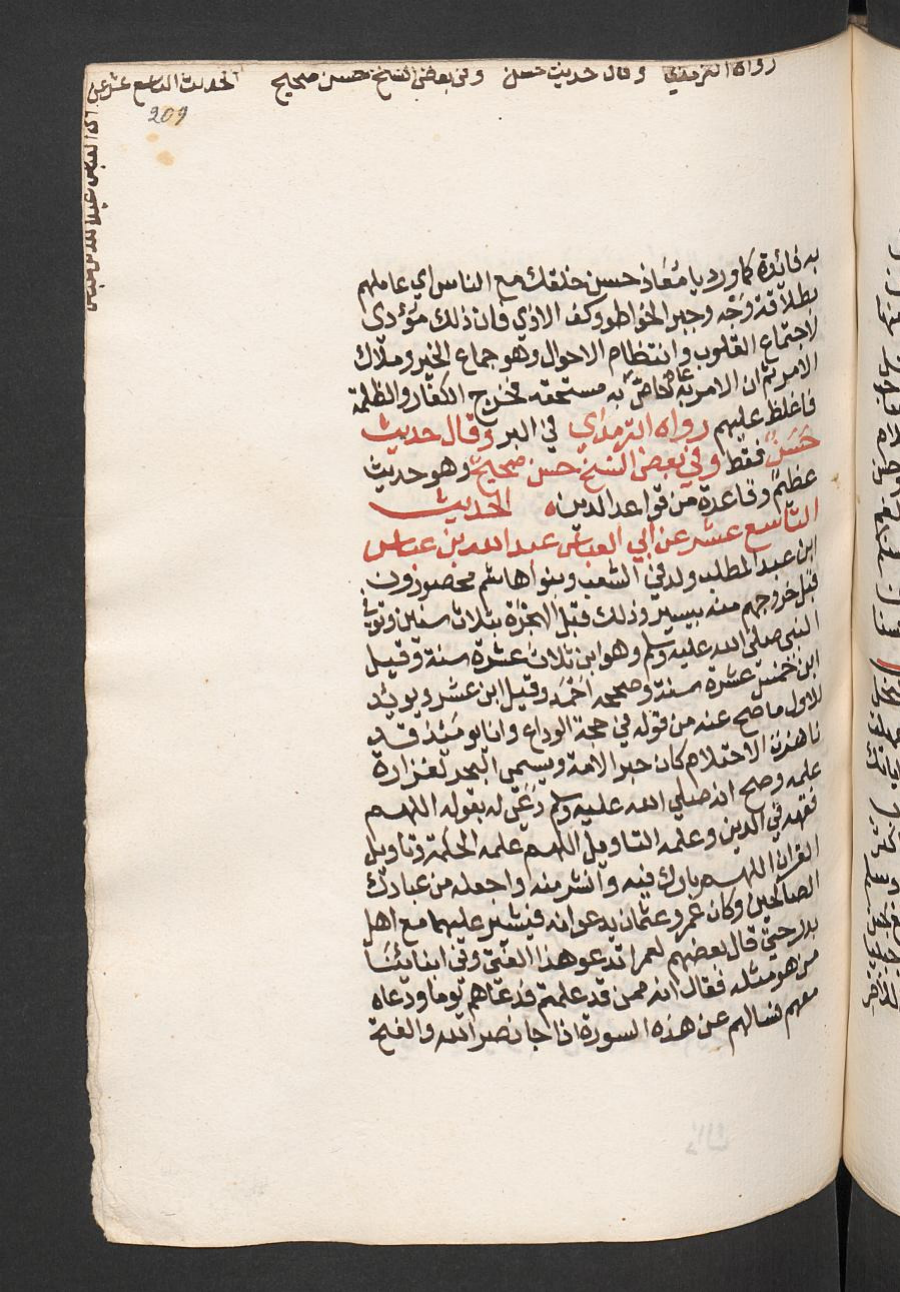 رواه الترمذي وقال حديث حسن وفي بعض النسخ حسن صحيح الحديث التاسع عشر عن
ابي العباس عبد الله بن عباس
209
به فائدة كما ورد يا مُعَاذ حسن خلقك مع الناس اي عاملهم
بطلاقة وَجْه وجبر الخواطر وكف الاذي فان ذلك مؤدي
لاجتماع القلوب وانتظام الاحوال وهو جماع الخير وملاك
الامر ثم ان الامر به عام خاص به مستحقه فخرج الكفار والظلمة
فاغلظ عليهم رواه الترمذي في البر وقال حديث
حَسَنٌ فقط وفي بعض النسخ حسن صحيح وهو حديث
عظيم وقاعدة من قواعد الدين الحديث
التاسع عشر عن أبي العباس عبد الله بن عباس
ابن عبد المطلب ولد في الشعب وبنوا هاشم محصورون
قبل خروجهم منه بيسير وذلك قبل الهجرة بثلاث سنين وتوفي
النبي صلى الله عليه وسلم وهو ابن ثلاث عشرة سنة وقيل
ابن خمس عشرة سنة وصححه احمد وقيل ابن عشر ويؤيد
للاول ما صح عنه من قوله في حجة الوداع وانا يومئذ قد
ناهزت الاحتلام كان حبر الامة ويسمى البحر لغزارة
علمه وصح انه صلى الله عليه وسلم دَعَى له بقوله اللهم
فقهه في الدين وعلمه التاويل اللهم علمه الحكمة وتاويل
القران اللهم بارك فيه وانشر منه واجعله من عبادك
الصالحين وكان عمر وعثمان يدعوانه فيشير عليهما مع اهل
بدر حتي قال بعضهم لعمر اتدعو هذا الفتى وفي ابنائنا
من هو مثله فقال انه ممن قد علمتم فدعاهم يوما ودعاه
معهم فسالهم عن هذه السورة اذا جا نصر الله والفتح